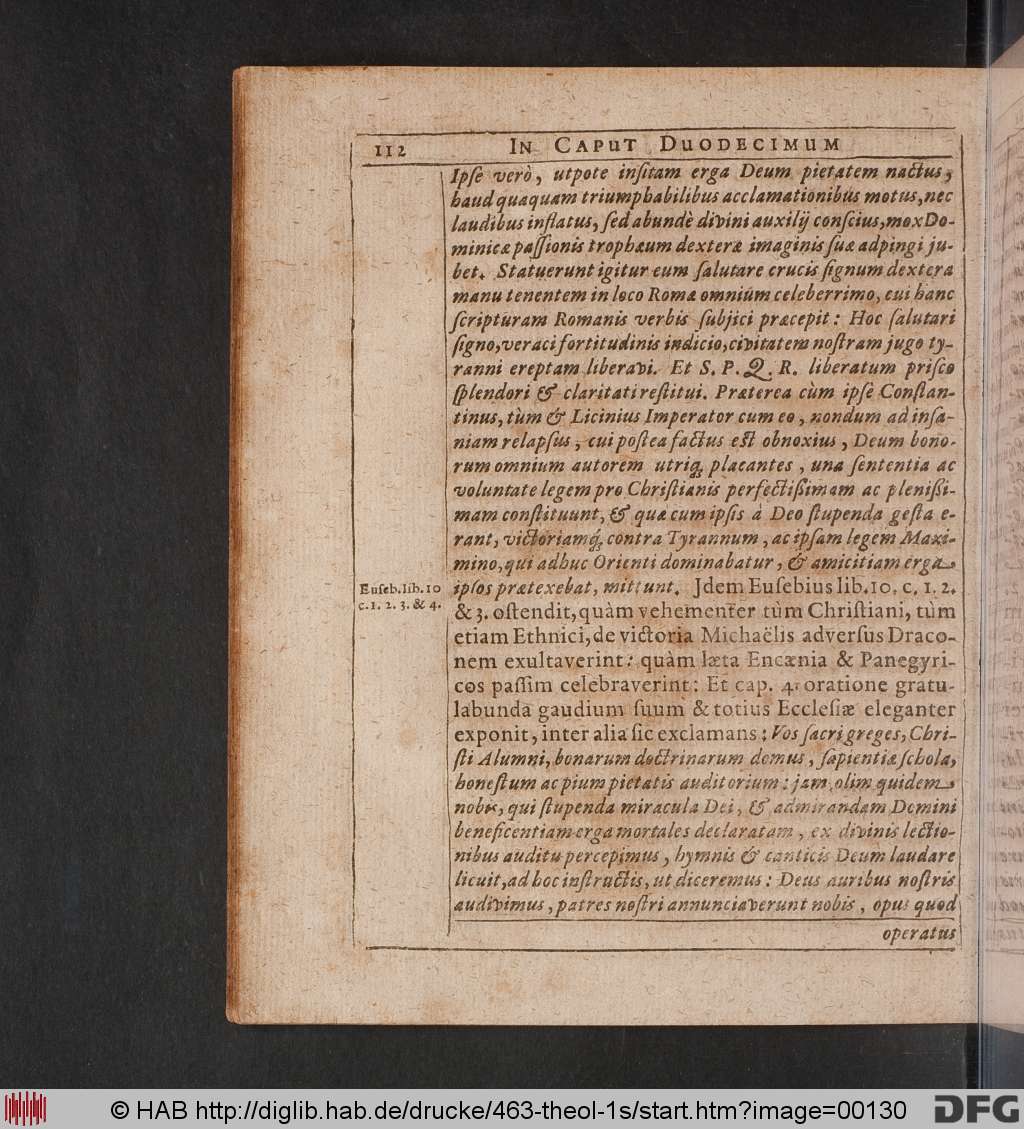 112 IN CAPUT DUODECIMUM
Ipſe verò, utpote inſitam erga Deum pietatem nactus,
haud quaquam triumphabilibus acclamationibus motus, nec
laudibus inflatus, ſed abundè divini auxilij conſcius, mox Do-
minicæ paſſionis trophæum dexteræ imaginis ſuæ adpingi ju-
bet. Statuerunt igitur eum ſalutare crucis ſignum dextera
manu tenentem in loco Romæ omnium celeberrimo, cui hanc
ſcripturam Romanis verbis ſubjici præcepit: Hoc ſalutari
ſigno, veraci fortitudinis indicio, civitatem noſtram jugo ty-
ranni ereptam liberavi. Et S. P. Q. R. liberatum priſco
ſplendori & claritati reſtitui. Præterea cùm ipſe Conſtan-
tinus, tùm & Licinius Imperator cum eo, nondum ad inſa-
niam relapſus, cui poſtea factus eſt obnoxius, Deum bono-
rum omnium autorem utriq; placantes, una ſententia ac
voluntate legem pro Chriſtianis perfectißimam ac plenißi-
mam conſtituunt, & quæ cum ipſis à Deo ſtupenda geſta e-
rant, victoriamq; contra Tyrannum, ac ipſam legem Maxi-
mino, qui adhuc Orienti dominabatur, & amicitiam erga
ipſos prætexebat, mittunt. Idem Euſebius lib. 10. c. 1. 2.
Euſeb. lib. 10
c. 1. 2. 3. & 4.
& 3. oſtendit, quàm vehementer tùm Chriſtiani, tùm
etiam Ethnici, de victoria Michaëlis adverſus Draco-
nem exultaverint: quàm læta Encænia & Panegyri-
cos paſſim celebraverint: Et cap. 4. oratione gratu-
labunda gaudium ſuum & totius Eccleſiæ eleganter
exponit, inter alia ſic exclamans: Vos ſacri greges, Chri-
ſti Alumni, bonarum doctrinarum domus, ſapientiæ ſchola,
honeſtum ac pium pietatis auditorium: jam olim quidem
nobis, qui ſtupenda miracula Dei, & admirandam Domini
beneficentiam erga mortales declaratam, ex divinis lectio-
nibus auditu percepimus, hymnis & canticis Deum laudare
licuit, ad hoc inſtructis, ut diceremus: Deus auribus noſtris
audivimus, patres noſtri annunciaverunt nobis, opus quod
operatus
© HAB http://diglib.hab.de/drucke/463-theol-1s/start.htm?image=00130
DFG